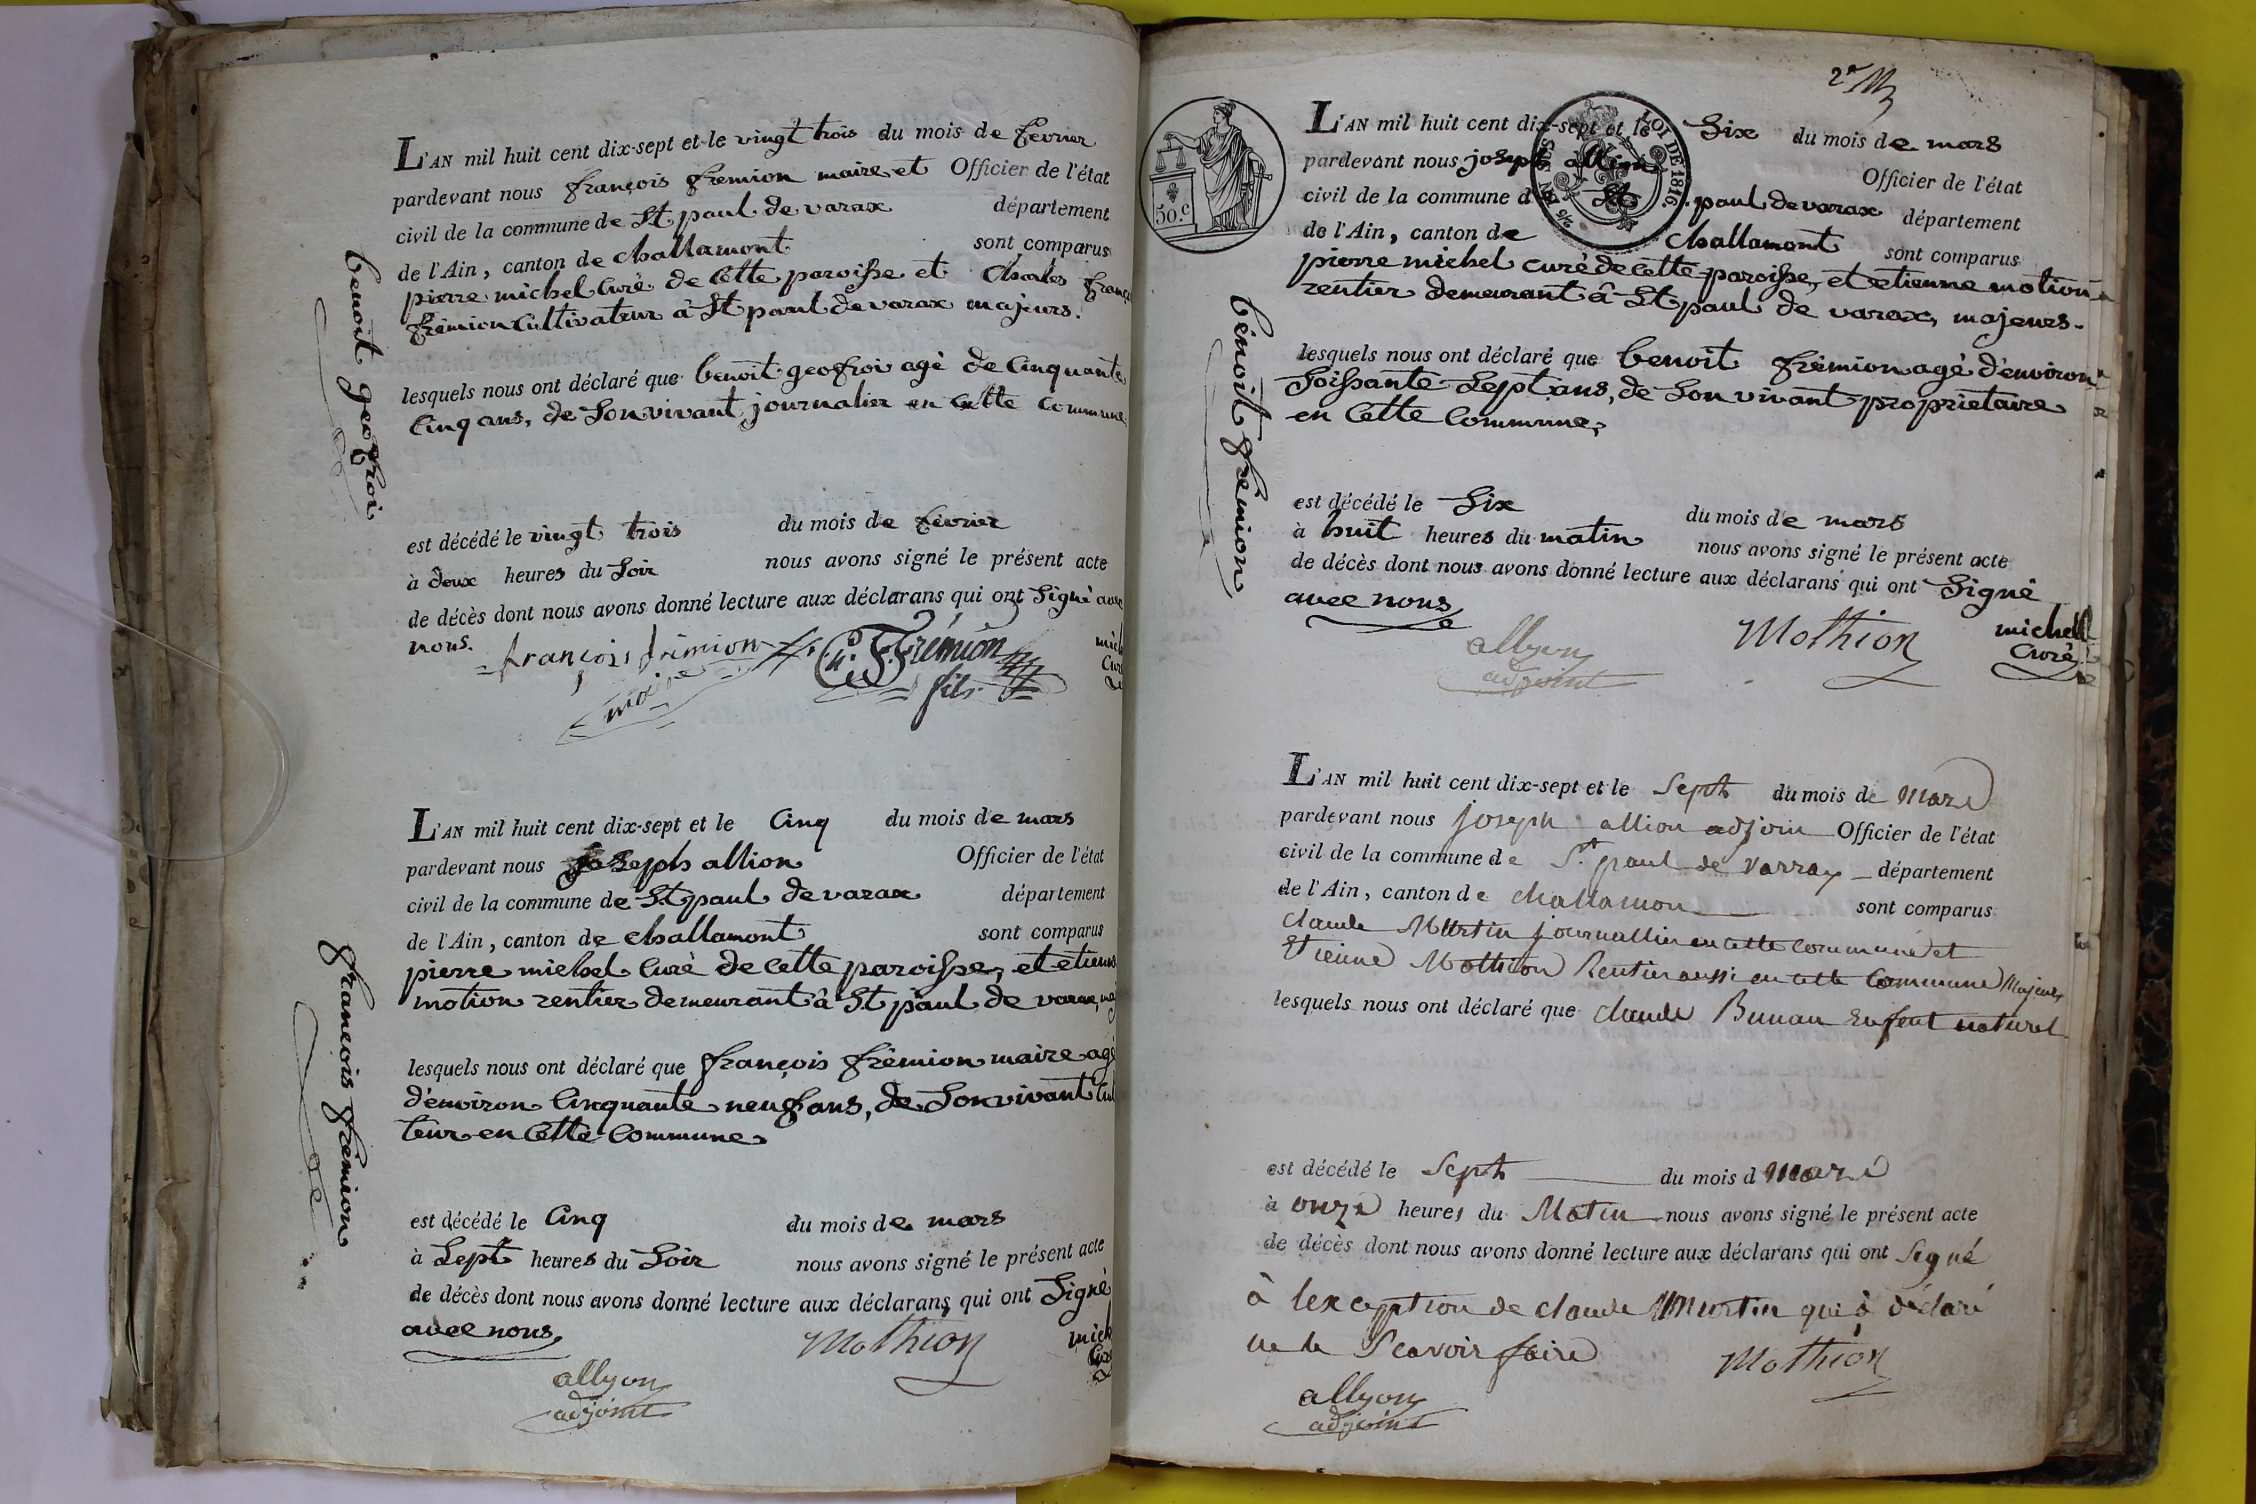 benoit geofroi
L'AN mil huit cent dix-sept et le vingt trois du mois de fevrier
pardevant nous françois fremion maire et Officier de l'état
civil de la commune de St paul de varax département
de l'Ain, canton de challamont sont comparus
pierre michel curé de cette paroisse et Charles
frémion cultivateur à St paul de varax majeurs.
lesquels nous ont déclaré que benoit geofroi agé de cinquante
cinq ans, de Son vivant journalier en cette commune
est décédé le vingt trois du mois de fevrier
à deux heures du Soir nous avons signé le présent acte
de décès dont nous avons donné lecture aux déclarans qui ont Signé avec
nous.
françois frémion
maire
C. F. Frémion
fils
françois frémion
L'AN mil huit cent dix-sept et le cinq du mois de mars
pardevant nous joseph allion Officier de l'état
civil de la commune de St paul de varax département
de l'Ain, canton de challamont sont comparus
pierre michel curé de cette paroisse, et etienne
motion rentier demeurant à St paul de varax,
lesquels nous ont déclaré que françois frémion maire agé
d'environ cinquante neuf ans, de Son vivant
teur en cette commune
est décédé le cinq du mois de mars
à Sept heures du Soir nous avons signé le présent acte
de décès dont nous avons donné lecture aux déclarans qui ont Signé
avec nous,
Mothion
allyon
adjoint
50.c
LOI DE 1816.
bénoit frémion
L'AN mil huit cent dix-sept et le Six du mois de mars
pardevant nous joseph allion Officier de l'état
civil de la commune de St paul de varax département
de l'Ain, canton de challamont sont comparus
pierre michel curé de cette paroisse, et etienne motion
rentier demeurant â St paul de varax, majeurs.
lesquels nous ont déclaré que benoit frémion agé d'environ
Soissante Sept ans, de Son vivant proprietaire
en cette commune,
est décédé le Six du mois de mars
à huit heures du matin nous avons signé le présent acte
de décès dont nous avons donné lecture aux déclarans qui ont Signé
avec nous
allyon
adjoint
Mothion
michel
curé
L'AN mil huit cent dix-sept et le Sept du mois de Mars
pardevant nous joseph allion adjoin Officier de l'état
civil de la commune de St paul de Varray département
de l'Ain, canton de challamon sont comparus
claude Murtin journallier en cette commune et
Etienne Mothion Rentier aussi en cette Commune Majeurs
lesquels nous ont déclaré que claude Bunan Enfent naturel
est décédé le Sept du mois d Mars
à onze heures du Matin nous avons signé le présent acte
de décès dont nous avons donné lecture aux déclarans qui ont Signé
à lexception de claude Murtin qui à déclaré
ne le Scavoir faire
Mothion
allyon
adjoint